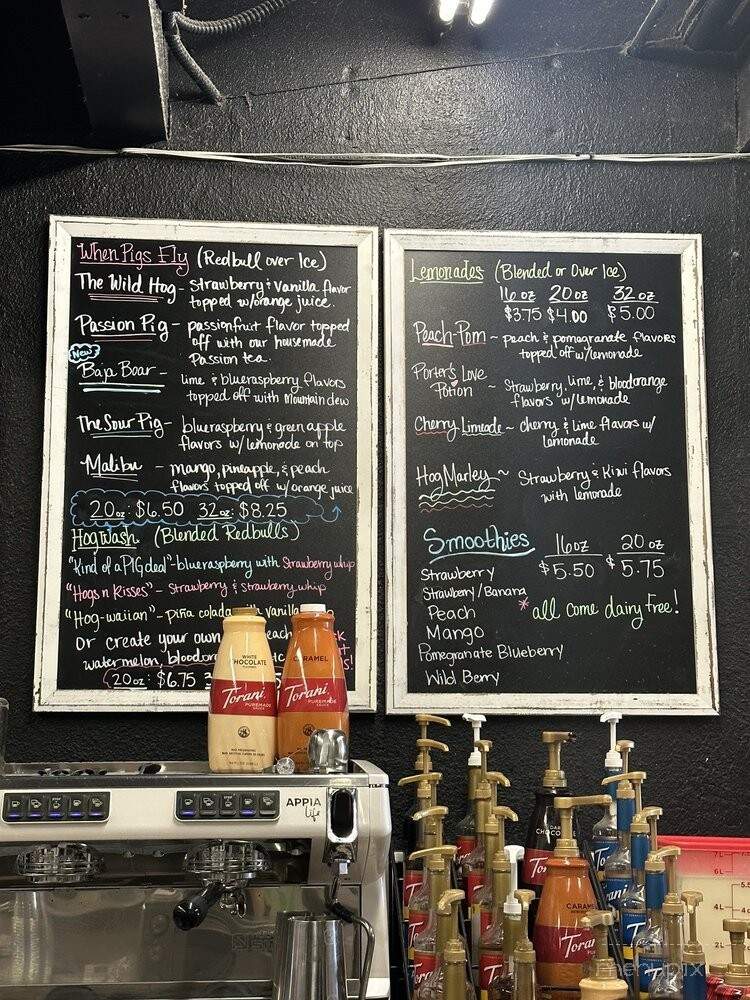 When Pigs Fly (Redbull over Ice)
The Wild Hog - strawberry & vanilla flavor
topped w/orange juice.
Passion Pig - passionfruit flavor topped
off with our housemade
Passion tea.
New!
Baja Boar - lime & blueraspberry flavors
topped off with Mountain dew
The Sour Pig - blueraspberry & green apple
flavors w/lemonade on top
Malibu - mango, pineapple, & peach
flavors topped off w/orange juice
20oz: $6.50 32oz: $8.25
Hogwash (Blended Redbulls)
"Kind of a PIG deal" - blueraspberry with Strawberry whip
"Hogs n Kisses" - Strawberry & Strawberry whip
"Hog-waiian" - Piña colada vanilla
or create your own
watermelon,
20oz: $6.75
Lemonades (Blended or Over Ice)
16 oz 20 oz 32 oz
$3.75 $4.00 $5.00
Peach-Pom ~ peach & pomegranate flavors
topped off w/lemonade
Porter's Love
Potion ~ Strawberry, lime, & bloodorange
flavors w/lemonade
Cherry Limeade ~ cherry & lime flavors w/
Lemonade
Hog Marley ~ Strawberry & Kiwi flavors
with lemonade
Smoothies 16oz 20 oz
$5.50 $5.75
Strawberry
Strawberry/Banana
Peach
Mango
Pomegranate Blueberry
Wild Berry
* all come dairy free!
WHITE
CHOCOLATE
Torani
PUREMADE
SAUCE
CARAMEL
Torani
PUREMADE
SAUCE
APPIA
life
DARK
CHOCOLATE
CARAMEL
Torani
menupix